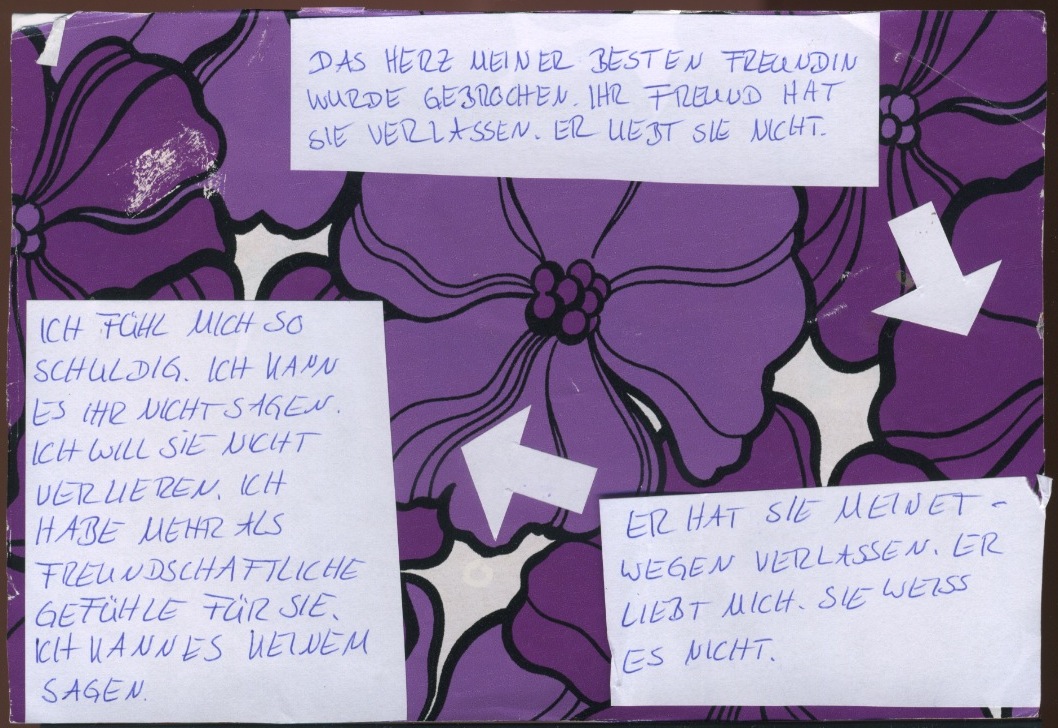 DAS HERZ MEINER BESTEN FREUNDIN
WURDE GEBROCHEN. IHR FREUND HAT
SIE VERLASSEN. ER LIEBT SIE NICHT.
ER HAT SIE MEINET-
WEGEN VERLASSEN. ER
LIEBT MICH. SIE WEISS
ES NICHT.
ICH FÜHL MICH SO
SCHULDIG. ICH KANN
ES IHR NICHT SAGEN.
ICH WILL SIE NICHT
VERLIEREN. ICH
HABE MEHR ALS
FREUNDSCHAFTLICHE
GEFÜHLE FÜR SIE.
ICH KANN ES KEINEM
SAGEN.